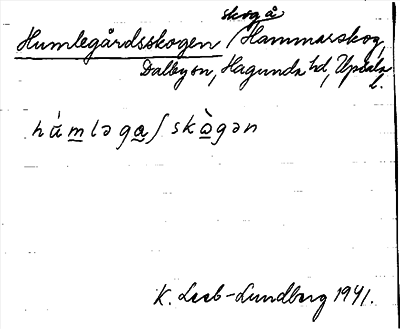 skog å
Humlegårdsskogen / Hammarskog,
Dalbysn, Hagunda hd, Upsala
l.
hú̀m̲ləga̲ʃskò̲gən
K. Leeb-Lundberg 1941.